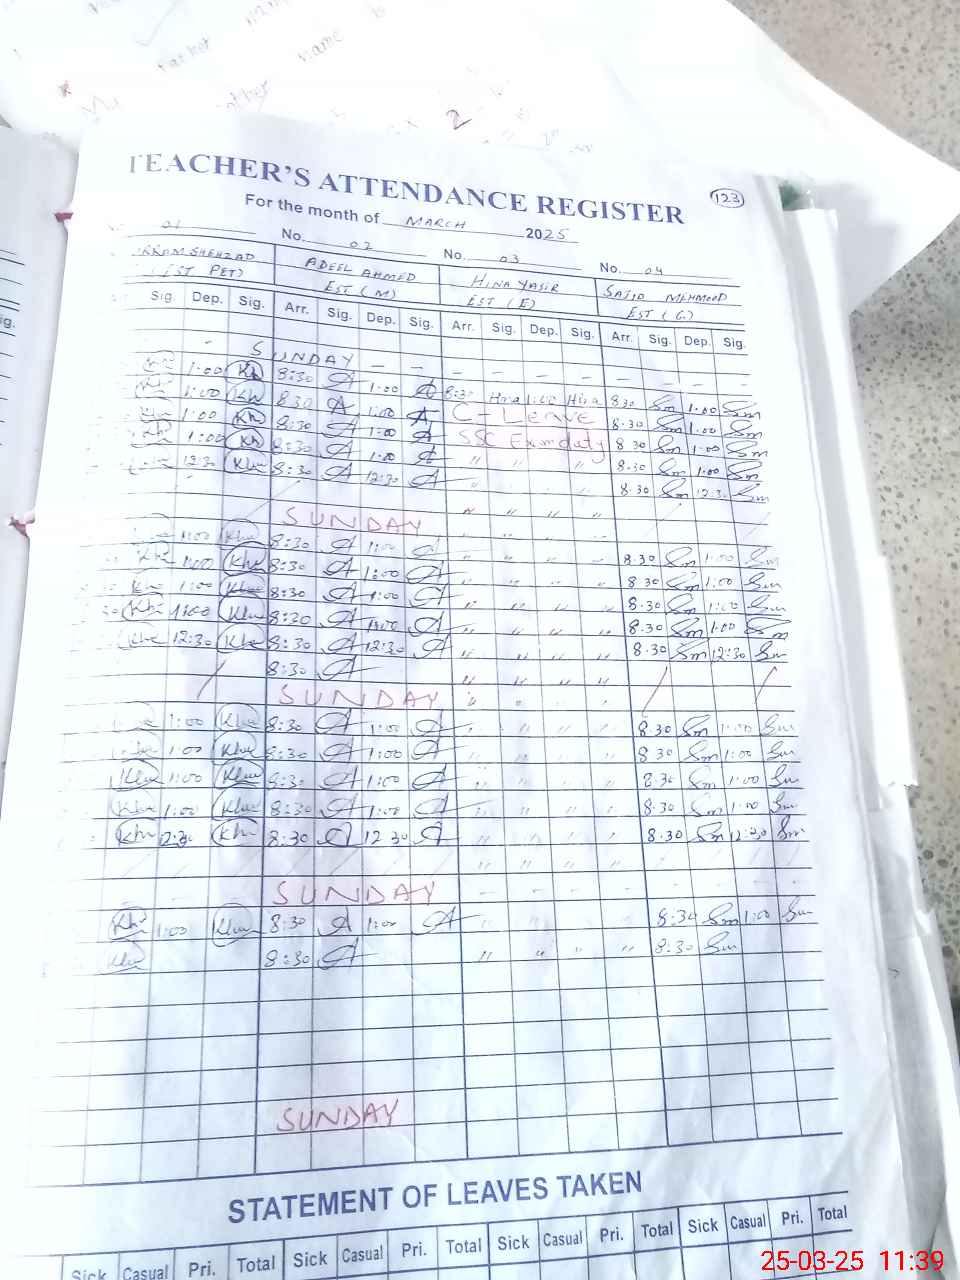 TEACHER'S ATTENDANCE REGISTER
123
For the month of MARCH 2025
01 No. 02 No. 03 No. 04
RRAM SHEHZAD ADEEL AHMED HINA YASIR SAJID MEHMOOD
(EST PET) EST (M) EST (E) EST (G)
Sig. Dep. Sig. Arr. Sig. Dep. Sig. Arr. Sig. Dep. Sig. Arr. Sig. Dep. Sig.
SUNDAY
1:00 Kh 8:30 A 1:00 A 8:30 Hina 1:00 Hina 8:30 Sm 1:00 Sm
1:00 Kh 8:30 A 1:00 A C-Leave 8:30 Sm 1:00 Sm
1:00 Kh 8:30 A 1:00 A SSC Exam duty 8:30 Sm 1:00 Sm
1:00 Kh 8:30 A 1:00 A " " " 8:30 Sm 1:00 Sm
12:30 Khu 8:30 A 12:30 A " " " 8:30 Sm 12:30 Sm
SUNDAY " " " "
1:00 Khu 8:30 A 1:00 A " " " 8:30 Sm 1:00 Sm
Khu 1:00 Khu 8:30 A 1:00 A " " " " 8:30 Sm 1:00 Sm
Khu 1:00 Khu 8:30 A 1:00 A " " " " 8:30 Sm 1:00 Sm
Khu 1:00 Khu 8:30 A 1:00 A " " " " 8:30 Sm 1:00 Sm
Khu 12:30 Khu 8:30 A 12:30 A " " " " 8:30 Sm 12:30 Sm
8:30 A " " " "
SUNDAY " " " "
1:00 Khu 8:30 A 1:00 A " " " " 8:30 Sm 1:00 Sm
1:00 Khu 8:30 A 1:00 A " " " " 8:30 Sm 1:00 Sm
Khu 1:00 Khu 8:30 A 1:00 A " " " " 8:30 Sm 1:00 Sm
Khu 1:00 Khu 8:30 A 1:00 A " " " " 8:30 Sm 1:00 Sm
Khu 12:30 Khu 8:30 A 12:30 A " " " " 8:30 Sm 12:30 Sm
" " " "
SUNDAY
Khu 1:00 Khu 8:30 A 1:00 A " " " " 8:30 Sm 1:00 Sm
Khu 8:30 A " " " " 8:30 Sm
SUNDAY
STATEMENT OF LEAVES TAKEN
Sick Casual Pri. Total Sick Casual Pri. Total Sick Casual Pri. Total Sick Casual Pri. Total
25-03-25 11:39